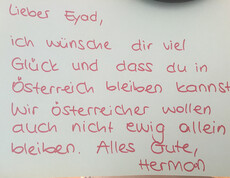 Lieber Eyad,
ich wünsche dir viel
Glück und dass du in
Österreich bleiben kannst
Wir österreicher wollen
auch nicht ewig allein
bleiben. Alles Gute,
Hermann